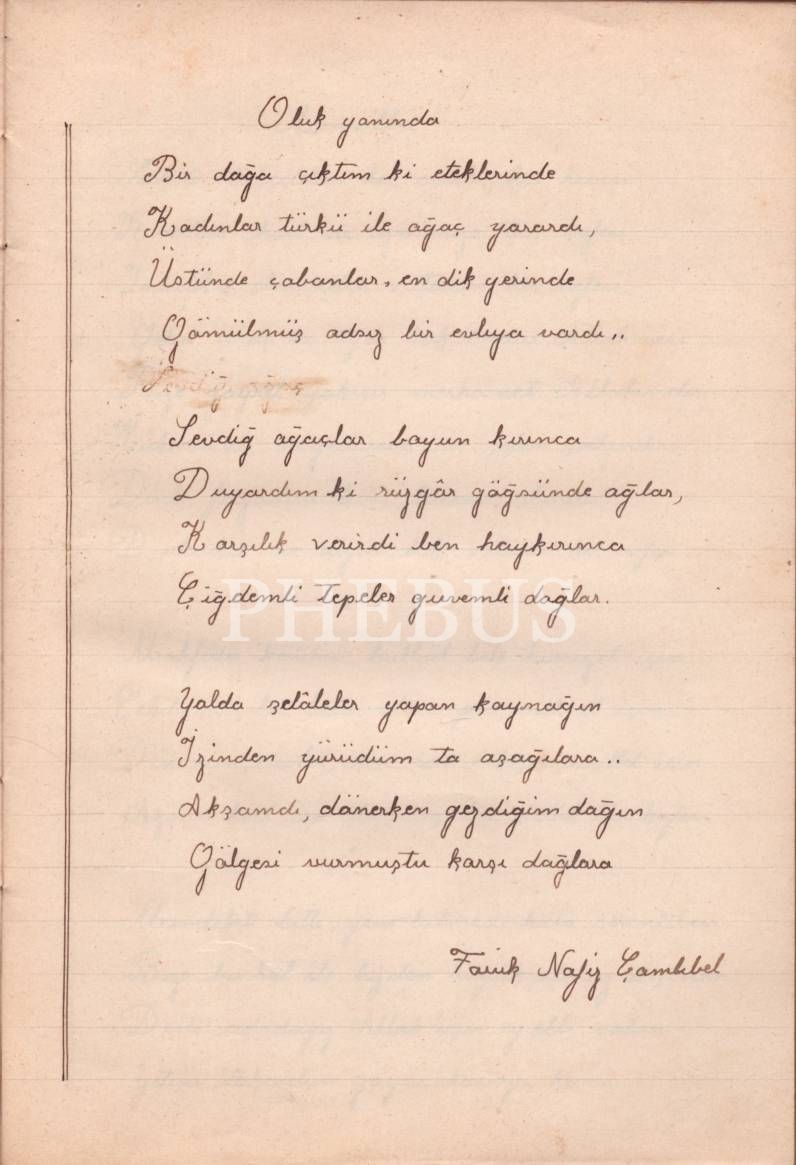 Oluk yanında
Bir dağa çıktım ki eteklerinde
Kadınlar türkü ile ağaç yarardı,
Üstünde çobanlar, en dik yerinde
Gömülmüş adsız bir evliya vardı..
Sevdiğ ağaç
Sevdiğ ağaçlar boyun kırınca
Duyardım ki rüzgâr göğsünde ağlar,
Karşılık verirdi ben haykırınca
Çiğdemli tepeler güvemli dağlar.
PHEBUS
Yolda şelâleler yapan kaynağın
İzinden yürüdüm ta aşağılara..
Akşamdı, dönerken gezdiğim dağın
Gölgesi vurmuştu karşı dağlara
Faruk Nafiz Çamlıbel